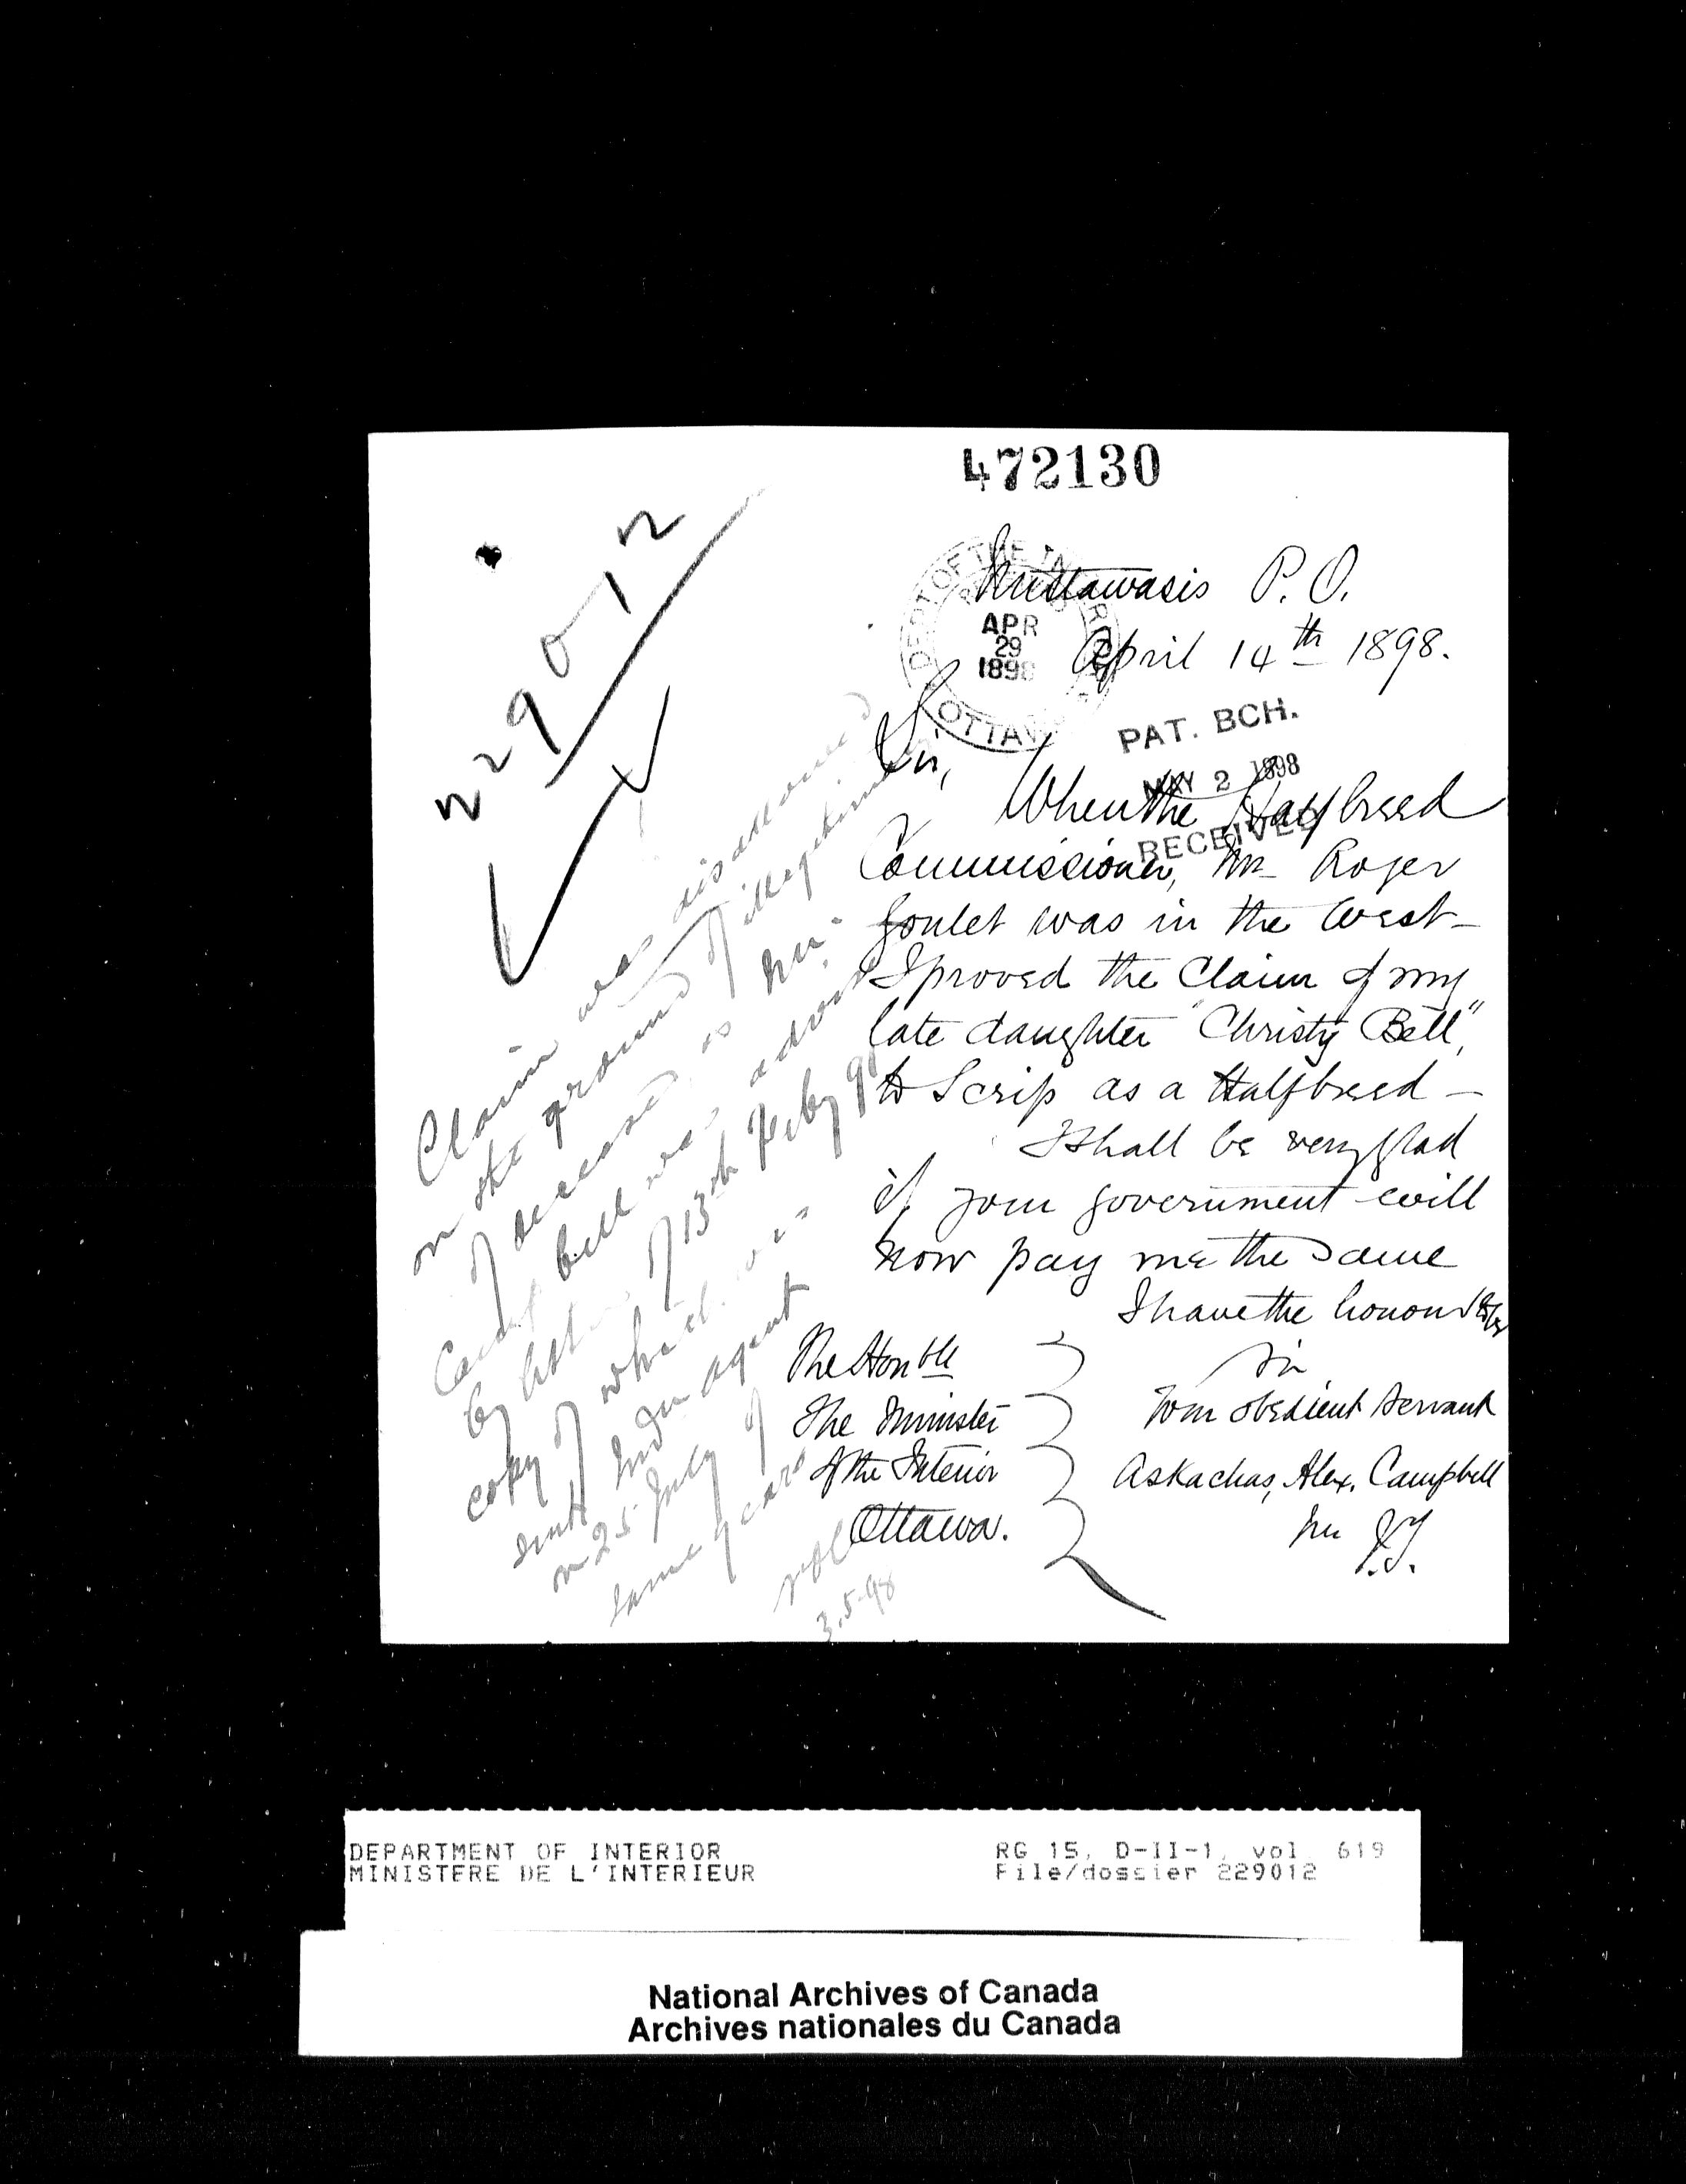 472130
229012
Mistawasis P. O.
April 14th 1898.
DEPT OF THE INTERIOR
APR
29
1898
OTTAWA
PAT. BCH.
MAY 2 1898
RECEIVED
Sir,
When the Halfbreed
Commissioner, Mr Roger
Goulet was in the West –
I proved the Claim of my
late daughter "Christy Bell",
to Scrip as a Halfbreed –
I Shall be very glad
if your government will
now pay me the same
I have the honour to be
Sir
Your obedient Servant
Askachas, Alex. Campbell
per J.
The Honble
The Minister
of the Interior
Ottawa.
Claim was disallowed
on the ground of illegitimacy
of deceased as Mr.
Campbell was advised
by letter of 13th Feby 9
copy of which was
sent Indn agent
on 25 July of
same year
3.5.98
DEPARTMENT OF INTERIOR
MINISTERE DE L'INTERIEUR
RG 15, D-II-1, vol 619
File/dossier 229012
National Archives of Canada
Archives nationales du Canada